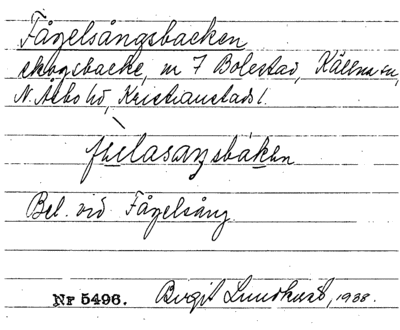 Fågelsångsbacken
skogsbacke, m 7 Bolestad, Källna sn,
N. Åsbo hd, Kristianstads l.
fuelasaŋsbaken
Bel. vid Fågelsång
Nr 5496. Birgit Lundkvist, 1938.